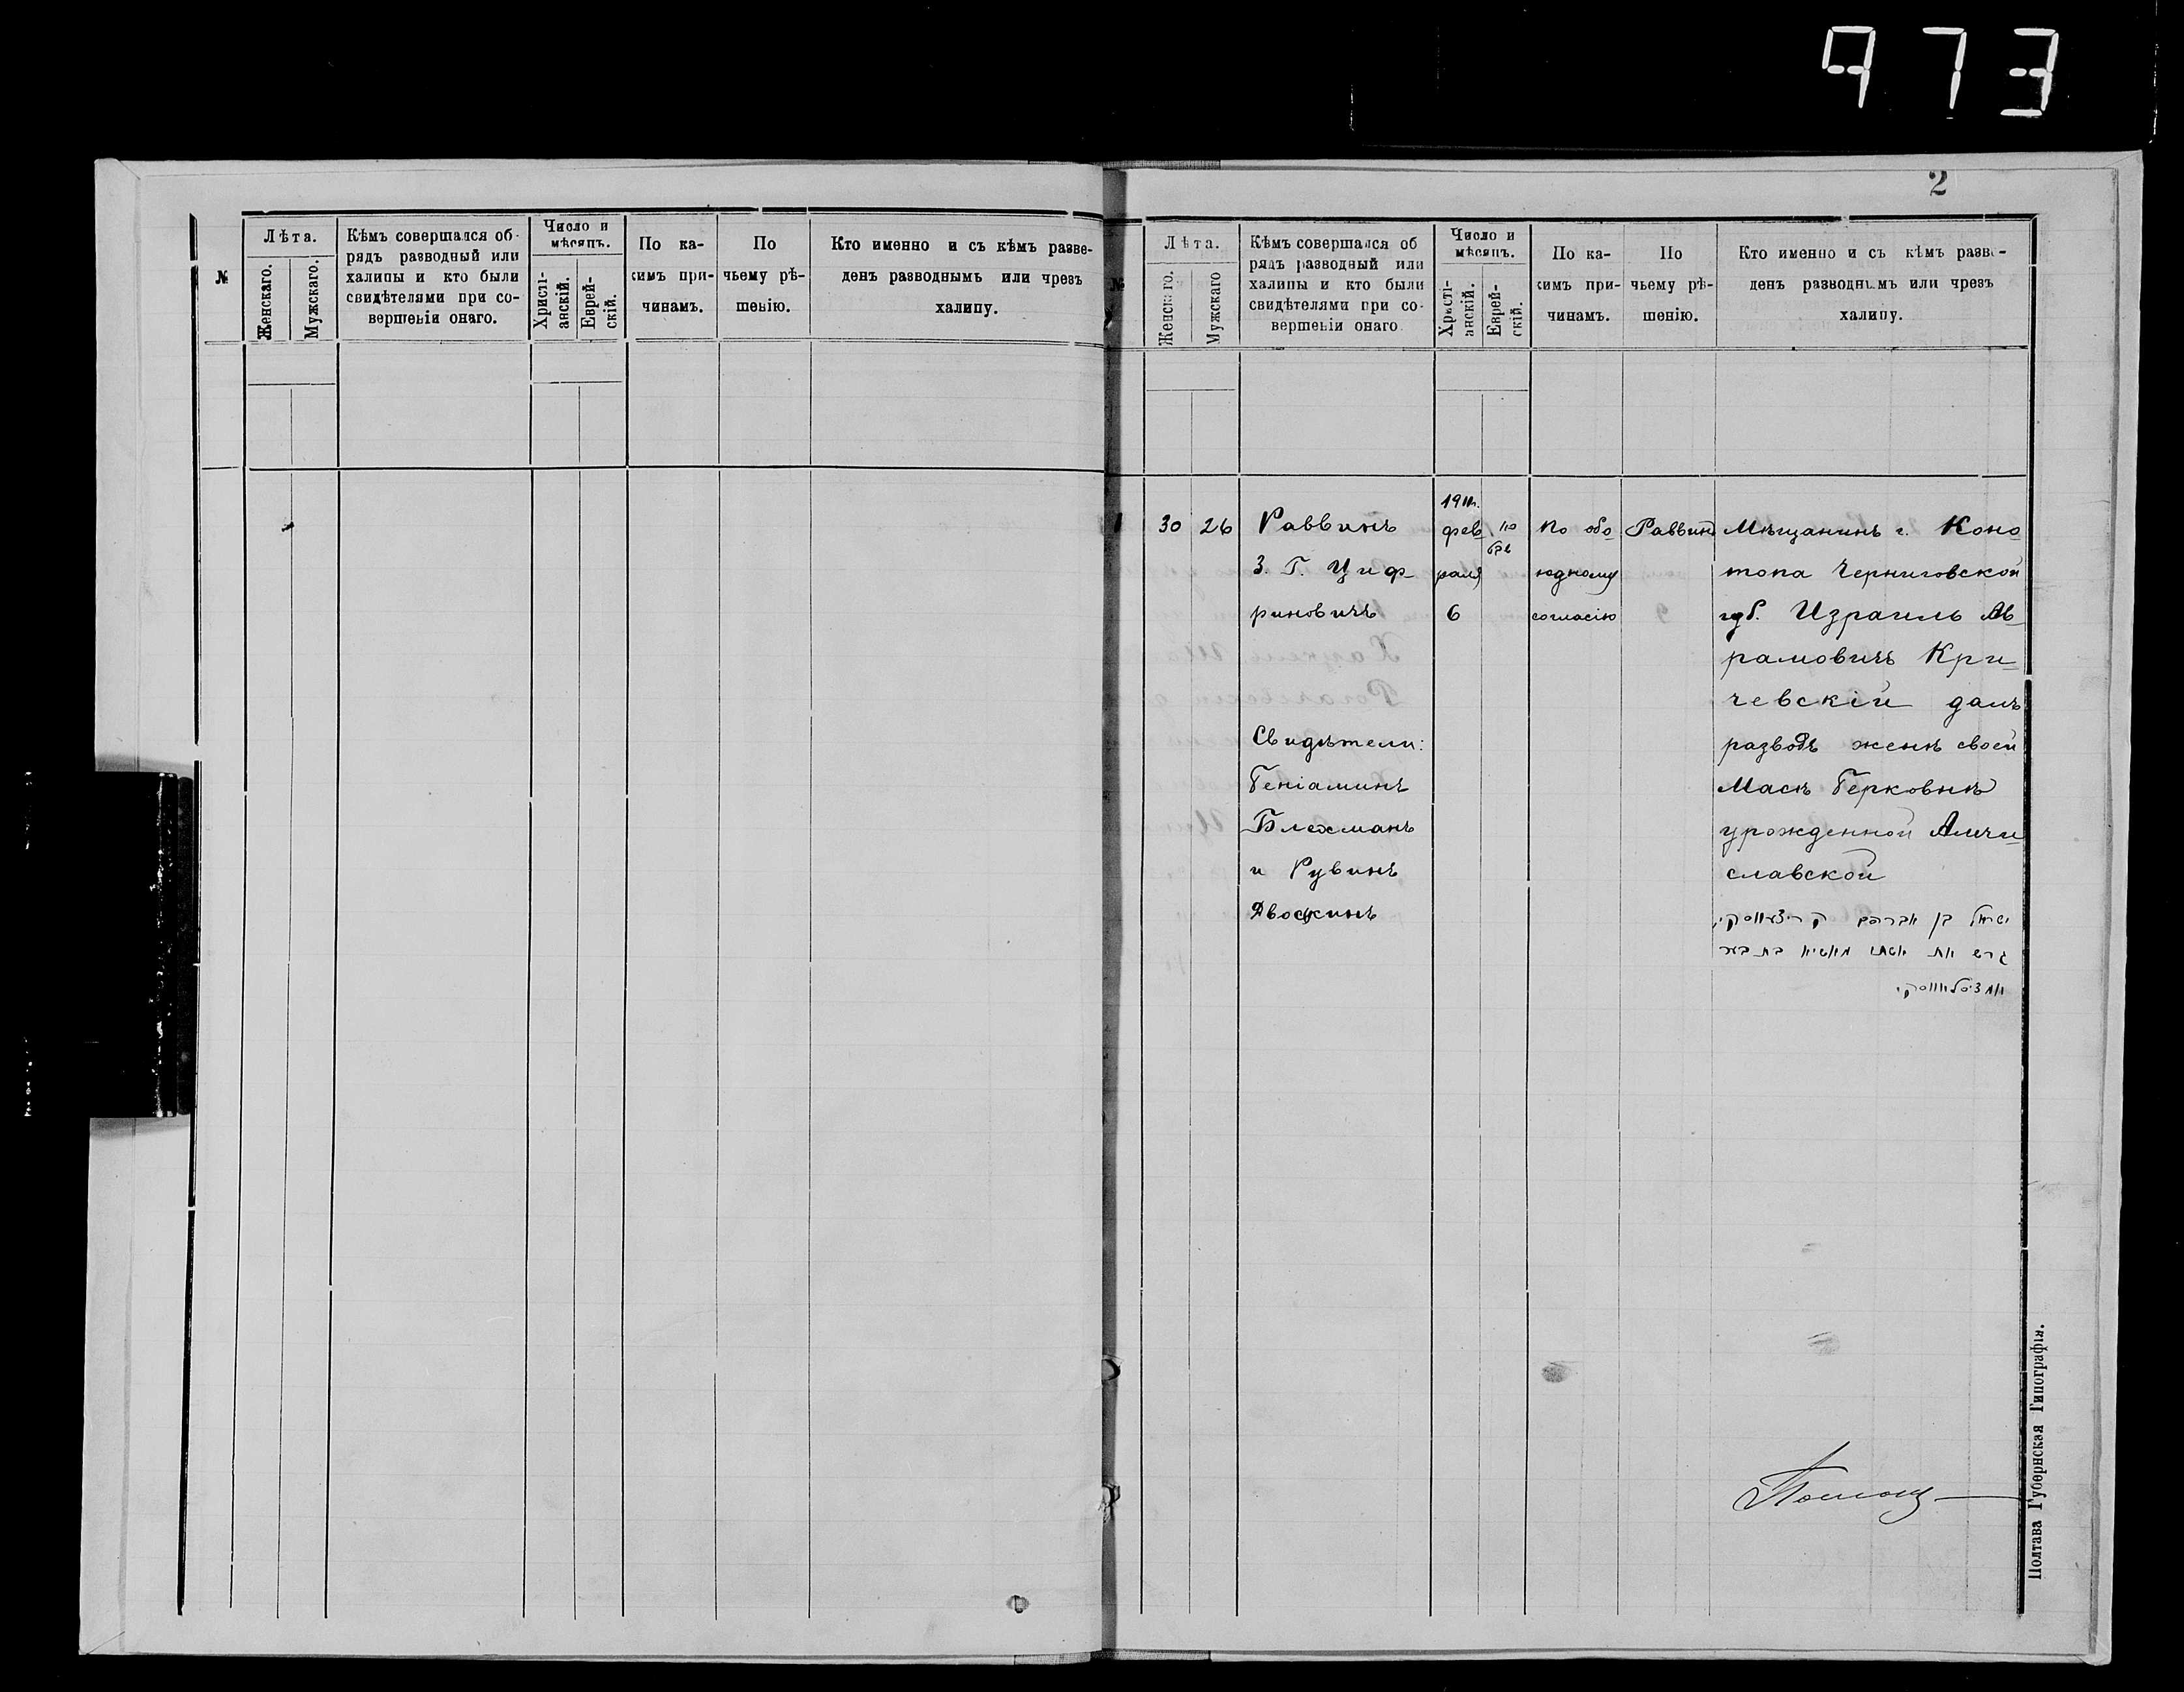 973
2
№
Лѣта.
Женскаго.
Мужскаго.
Кѣмъ совершался об-
рядъ разводный или
халипы и кто были
свидѣтелями при со-
вершеніи онаго.
Число и
мѣсяцъ.
Христі-
анскій.
Еврей-
скій.
По ка-
кимъ при-
чинамъ.
По
чьему рѣ-
шенію.
Кто именно и съ кѣмъ разве-
денъ разводнымъ или чрезъ
халипу.
№
Лѣта.
Женскаго.
Мужскаго
Кѣмъ совершался об
рядъ разводный или
халипы и кто были
свидѣтелями при со-
вершеніи онаго
Число и
мѣсяцъ.
Христі-
анскій.
Еврей-
скій.
По ка-
кимъ при-
чинамъ.
По
чьему рѣ-
шенію.
Кто именно и съ кѣмъ разве-
денъ разводнымъ или чрезъ
халипу.
1
30
26
Раввинъ
З. Г. Циф-
риновичъ
Свидѣтели:
Беніаминъ
Блехманъ
и Рувинъ
Двоскинъ
1911г.
фев-
раля
6
По обо-
юдному
согласію
Раввина
Мѣщанинъ г. Коно-
топа Черниговской
губ. Израиль Ав-
рамовичъ Кри-
чевскій далъ
разводъ женѣ своей
Масѣ Берковнѣ
урожденной
славской
ישראל בן אברהם קריצעווסקי
גרש את אשתו מאסיא בת בער
Полтава Губернская Типографія.